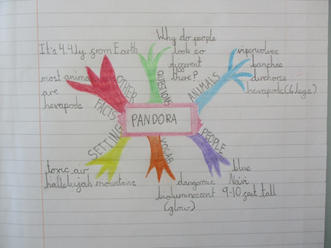 It's 4.4ly from Earth
most animals
are
hexapods
OTHER
FACTS
Why do people
look so
different
here?
QUESTIONS
viperwolves
banshee
direhorse
hexapods (6 legs)
ANIMALS
PANDORA
SETTING
toxic air
hallelujah mountains
VOCAB
dangerous
bioluminescent
(glow)
PEOPLE
blue
Na'vi
9-10 feet tall